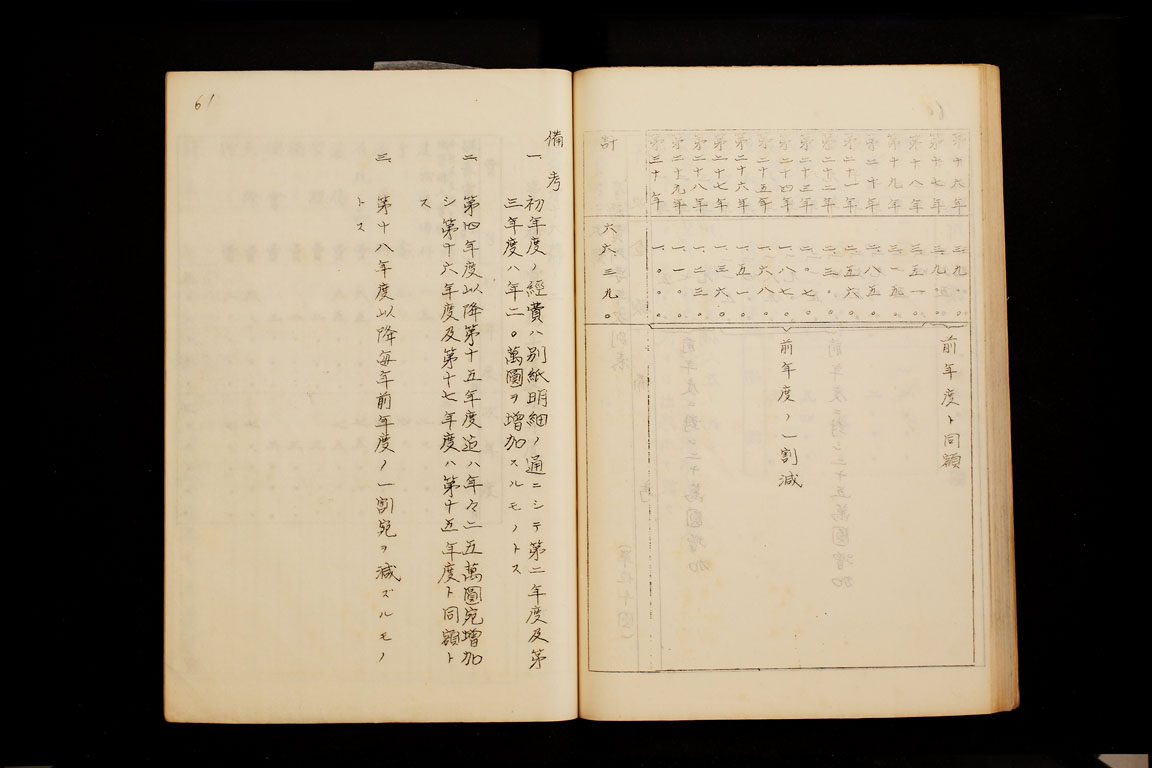 第十六年 三、九〇〇
第十七年 三、九〇〇
第十八年 三、五一〇
第十九年 三、一五〇
第二十年 二、八五〇
第二十一年 二、五六〇
第二十二年 二、三〇〇
第二十三年 二、〇七〇
第二十四年 一、八七〇
第二十五年 一、六八〇
第二十六年 一、五一〇
第二十七年 一、三六〇
第二十八年 一、二三〇
第二十九年 一、一〇〇
第三十年 一、〇〇〇
計 六六三九〇
前年度ト同額
前年度ノ一割減
61
備考
一、初年度ノ經費ハ別紙明細ノ通ニシテ第二年度及第
三年度ハ年二〇萬圓ヲ増加スルモノトス
二、第四年度以降第十五年度迠ハ年々二五萬圓宛増加
シ第十六年度及第十七年度ハ第十五年度ト同額ト
ス
三、第十八年度以降毎年前年度ノ一割宛ヲ減ズルモノ
トス